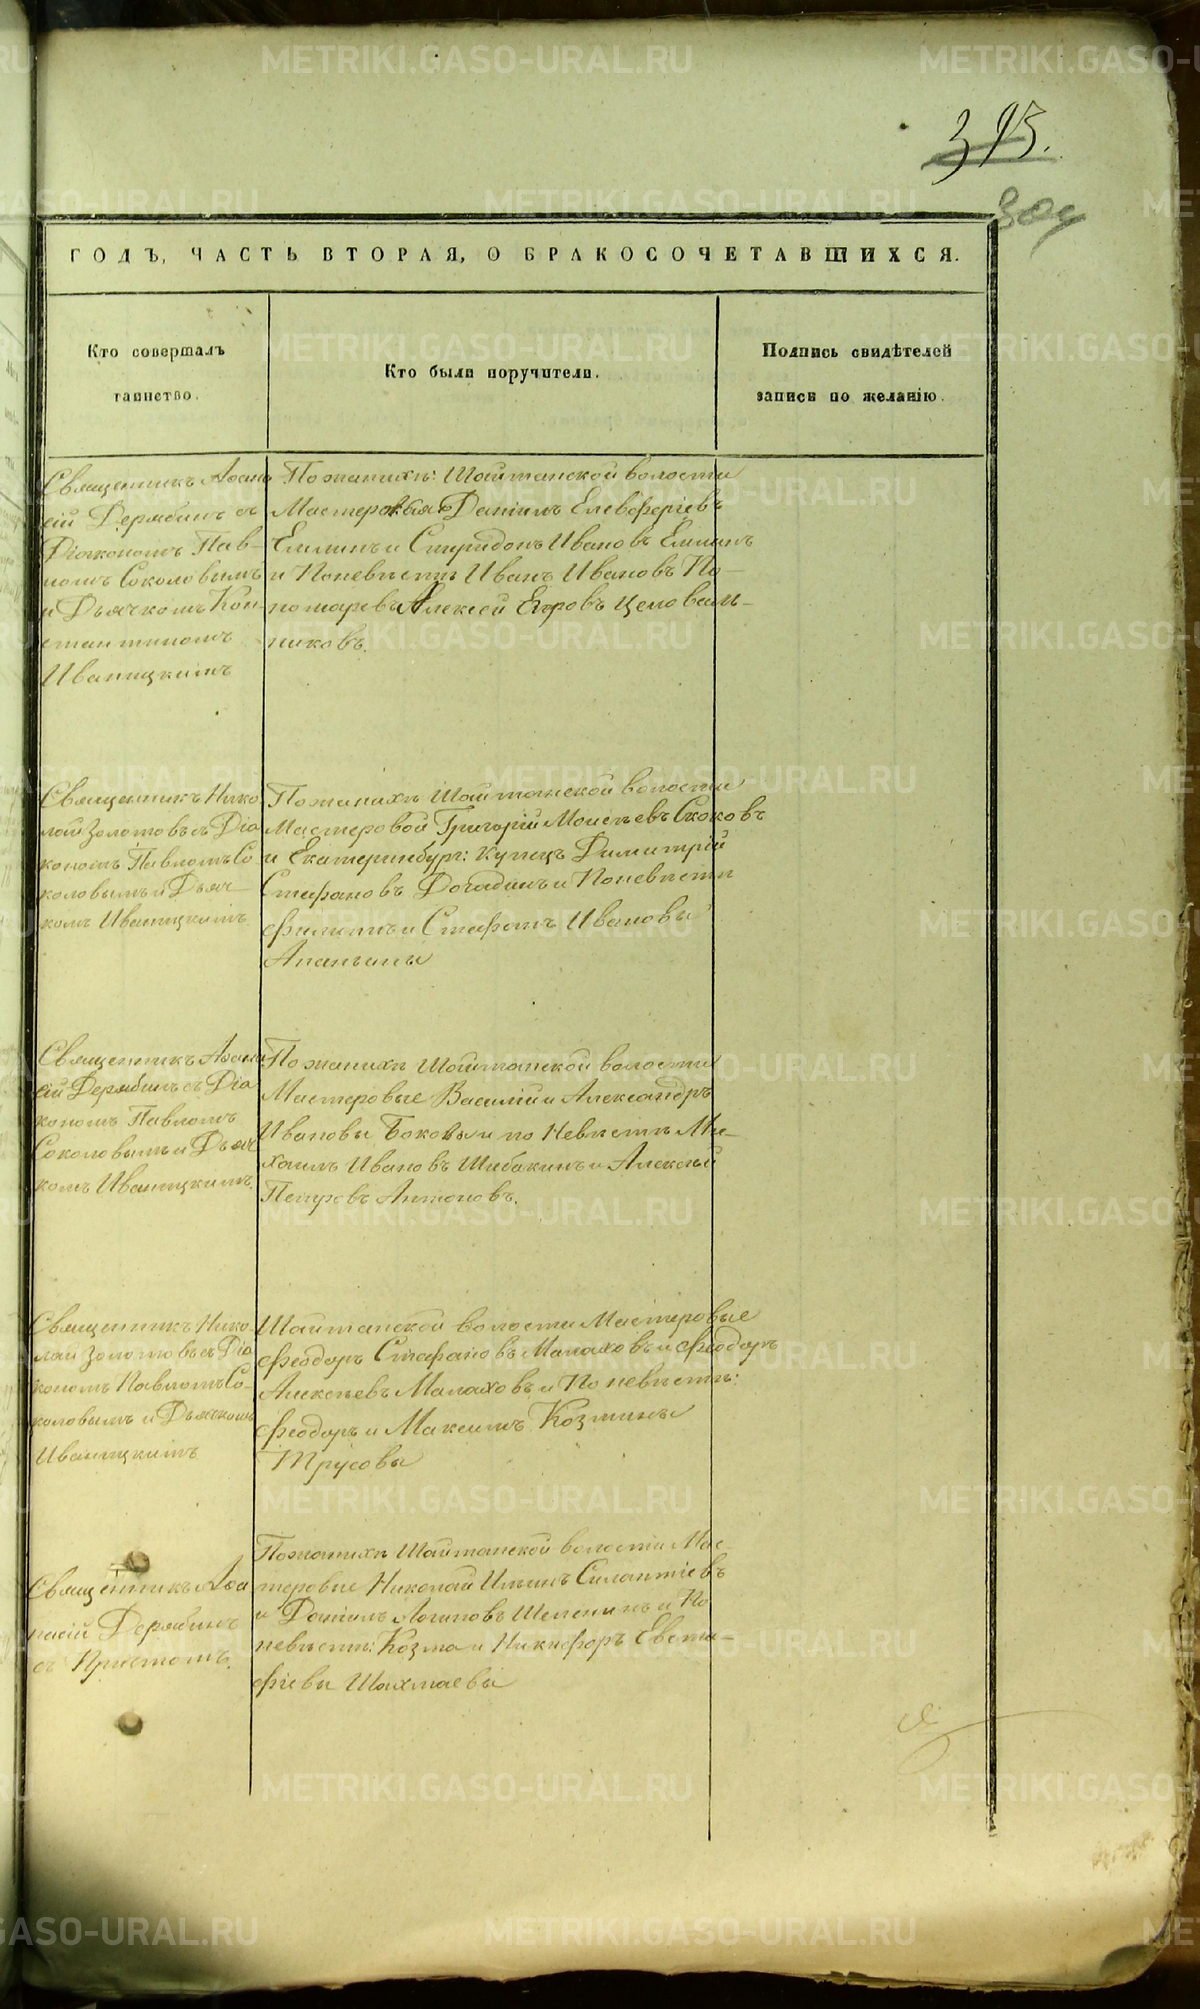 393.
ГОДЪ, ЧАСТЬ ВТОРАЯ, О БРАКОСОЧЕТАВШИХСЯ.
Кто совершалъ
таинство.
Кто были поручители.
Подпись свидѣтелей
записи по желанію.
Священникъ Афана
сій Дерябинъ съ
Діакономъ Пав-
ломъ Соколовымъ
и Дьячкомъ Кон-
стантиномъ
Иваницкимъ
По женихѣ: Шайтанской волости
Мастеровые Даніилъ Елевферіевъ
Елилинъ и Спиридонъ Ивановъ Елилинъ
и По невѣстѣ Иванъ Ивановъ По-
номаревъ Алексѣй Егоровъ Целоваль-
никовъ.
Священникъ Нико
лай Золотовъ съ Діа
кономъ Павломъ Со
коловымъ и Дьяч-
комъ Иваницкимъ
По женихѣ Шайтанской волости
Мастеровой Григорій Моисѣевъ Скоковъ
и Екатеринбург: купецъ Димитрій
Стефановъ Догадинъ и По невѣстѣ
Филиппъ и Стефанъ Ивановы
Ананьины
Священникъ Афана
сій Дерябинъ съ Діа
кономъ Павломъ
Соколовымъ и Дьяч
комъ Иваницкимъ.
По женихѣ Шайтанской волости
Мастеровые Василій и Александръ
Ивановы Боковы и по Невѣстѣ Ми-
хаилъ Ивановъ Шибакинъ и Алексѣй
Петровъ Антоновъ.
Священникъ Нико
лай Золотовъ съ Діа
кономъ Павломъ Со-
коловымъ и Дьячкомъ
Иваницкимъ
Шайтанской волости Мастеровые
Феодоръ Стефановъ Малаховъ и Феодоръ
Алексѣевъ Малаховъ и По невѣстѣ:
Феодоръ и Максимъ Козмины
Трусовы
Священникъ Афа
насій Дерябинъ
съ Притчомъ.
По женихѣ Шайтанской волости Мас-
теровые Николай Ильинъ Силантіевъ
и Даніилъ Логиновъ Шепенинъ и По
невѣстѣ: Козма и Никифоръ Евста-
фіевы Шахмаевы
METRIKI.GASO-URAL.RU